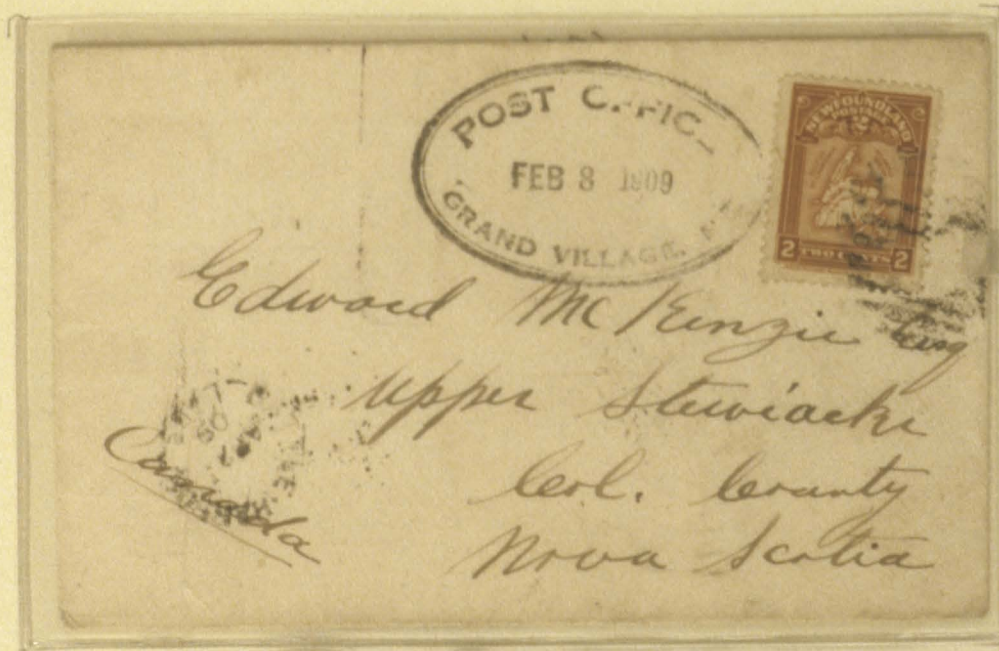 POST OFFIC
FEB 8 1909
GRAND VILLAGE
NEWFOUNDLAND
POSTAGE
2
2 TWO CENTS 2
Edward McKenzie Esq
Upper Stewiacke
Col. County
Nova Scotia
Canada